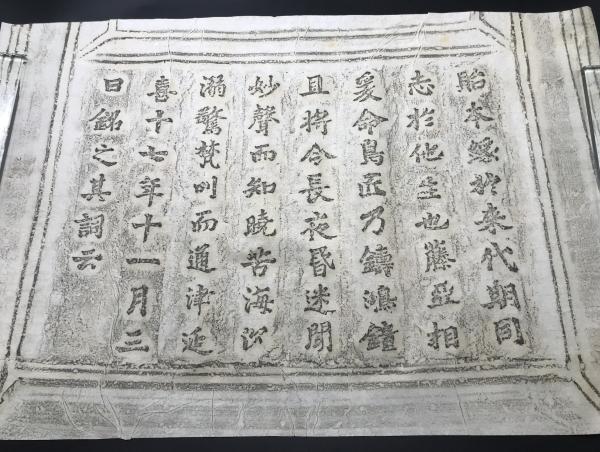 貽本縁於来代期同
志於他生也藤亞相
爰命鳧匠乃鑄鴻鐘
且將令長夜昏迷聞
妙聲而知曉苦海沉
溺驚梵叫而通津延
喜十七年十一月三
日銘之其詞云